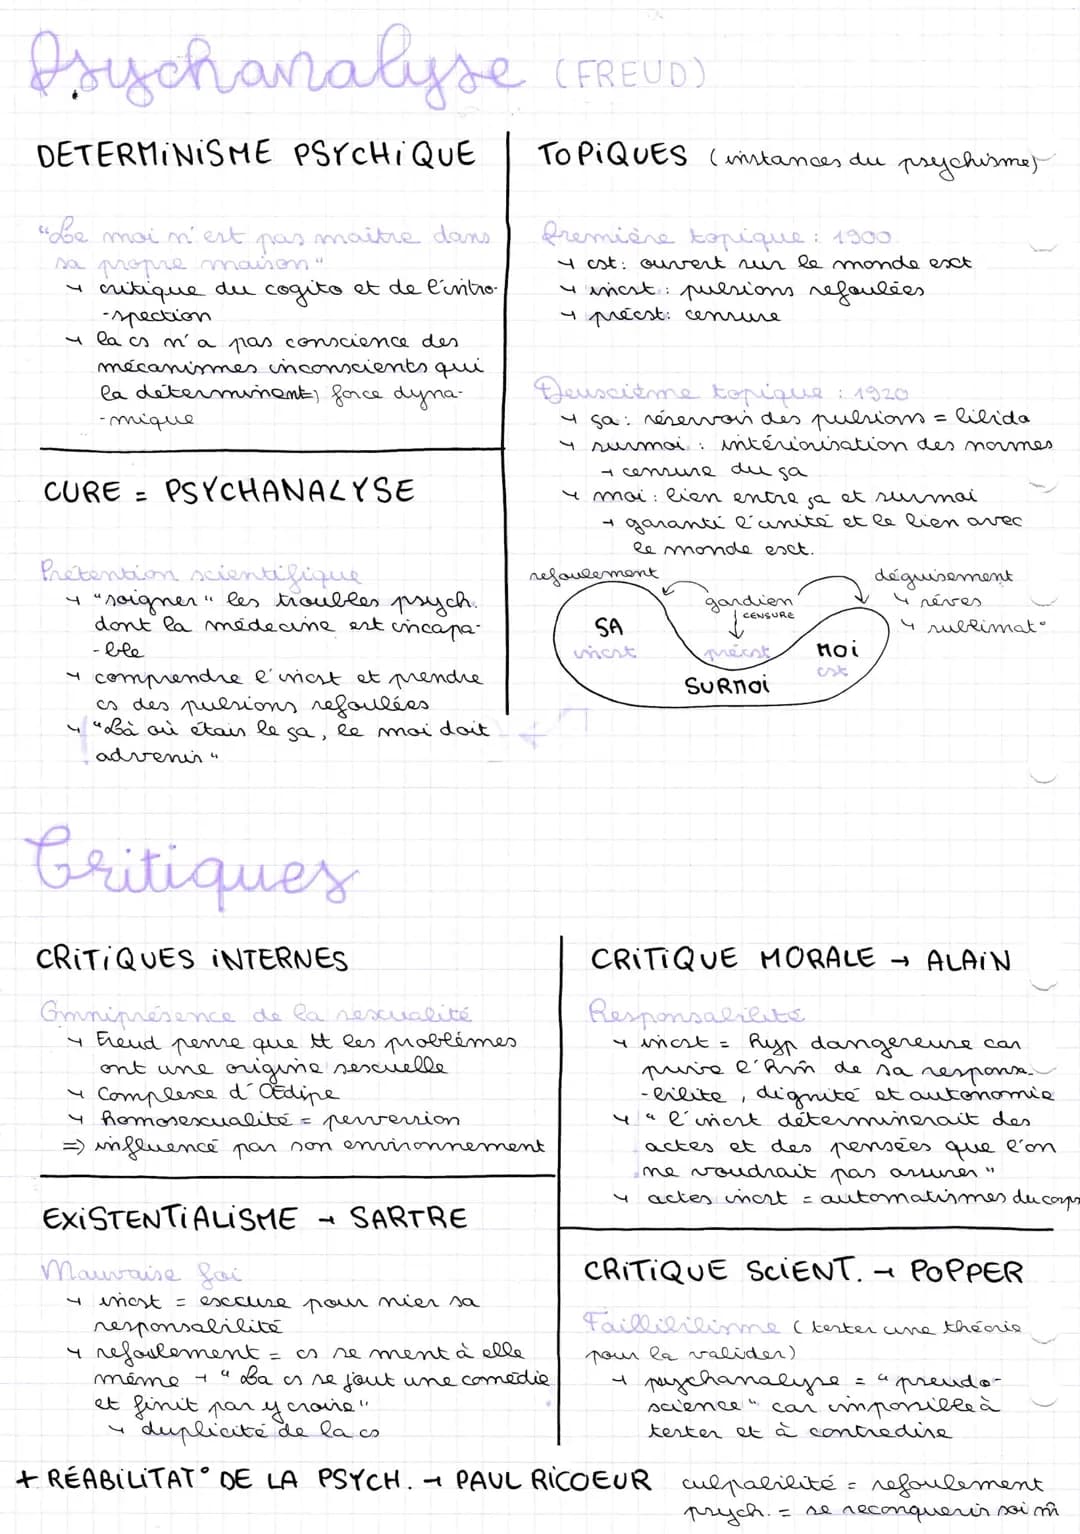 Psychanalyse (FREUD)
DETERMINISME PSYCHIQUE
"Le moi n'est pas maitre dans
sa propre maison"
→ critique du cogito et de l'intro-
-spection
→ la cs n'a pas conscience des
mécanismes inconscients qui
la déterminent, force dyna-
-mique
CURE = PSYCHANALYSE
Prétention scientifique
→ "soigner" les troubles psych.
dont la médecine est incapa-
-ble
→ comprendre l'incst et prendre
cs des pulsions refoulées
→ "Là où étais le ça, le moi doit
advenir"
TOPIQUES (instances du psychisme)
Première topique : 1900
→ cst : ouvert sur le monde ext
→ incst : pulsions refoulées
→ précst : censure
Deuxième topique : 1920
→ ça : réservoir des pulsions = libido
→ surmoi : intériorisation des normes
→ censure du ça
→ moi : lien entre ça et surmoi
→ garanti l'unité et le lien avec
le monde ext.
refoulement
gardien
CENSURE
déguisement
→ rêves
→ sublimat°
SA
incst
précst
MOi
cst
SURMOi
Critiques
CRITIQUES INTERNES
Omniprésence de la sexualité
→ Freud pense que tt les problèmes
ont une origine sexuelle
→ Complexe d'Œdipe
→ homosexualité = perversion
=> influencé par son environnement
EXISTENTIALISME → SARTRE
Mauvaise foi
→ incst = excuse pour nier sa
responsabilité
→ refoulement = cs se ment à elle
même → "La cs se jout une comédie
et finit par y croire"
→ duplicité de la cs
CRITIQUE MORALE → ALAIN
Responsabilité
→ incst = hyp dangereuse car
prive l'hm̂ de sa responsa-
-bilite, dignité et autonomie
→ "l'incst déterminerait des
actes et des pensées que l'on
ne voudrait pas assumer"
→ actes incst = automatismes du corps
CRITIQUE SCIENT. → POPPER
Faillibilisme (tester une théorie
pour la valider)
→ psychanalyse = "pseudo-
science" car impossible à
tester et à contredire
+ RÉABILITAT° DE LA PSYCH. → PAUL RICOEUR culpabilité = refoulement
psych. = se reconquerir soi m̂